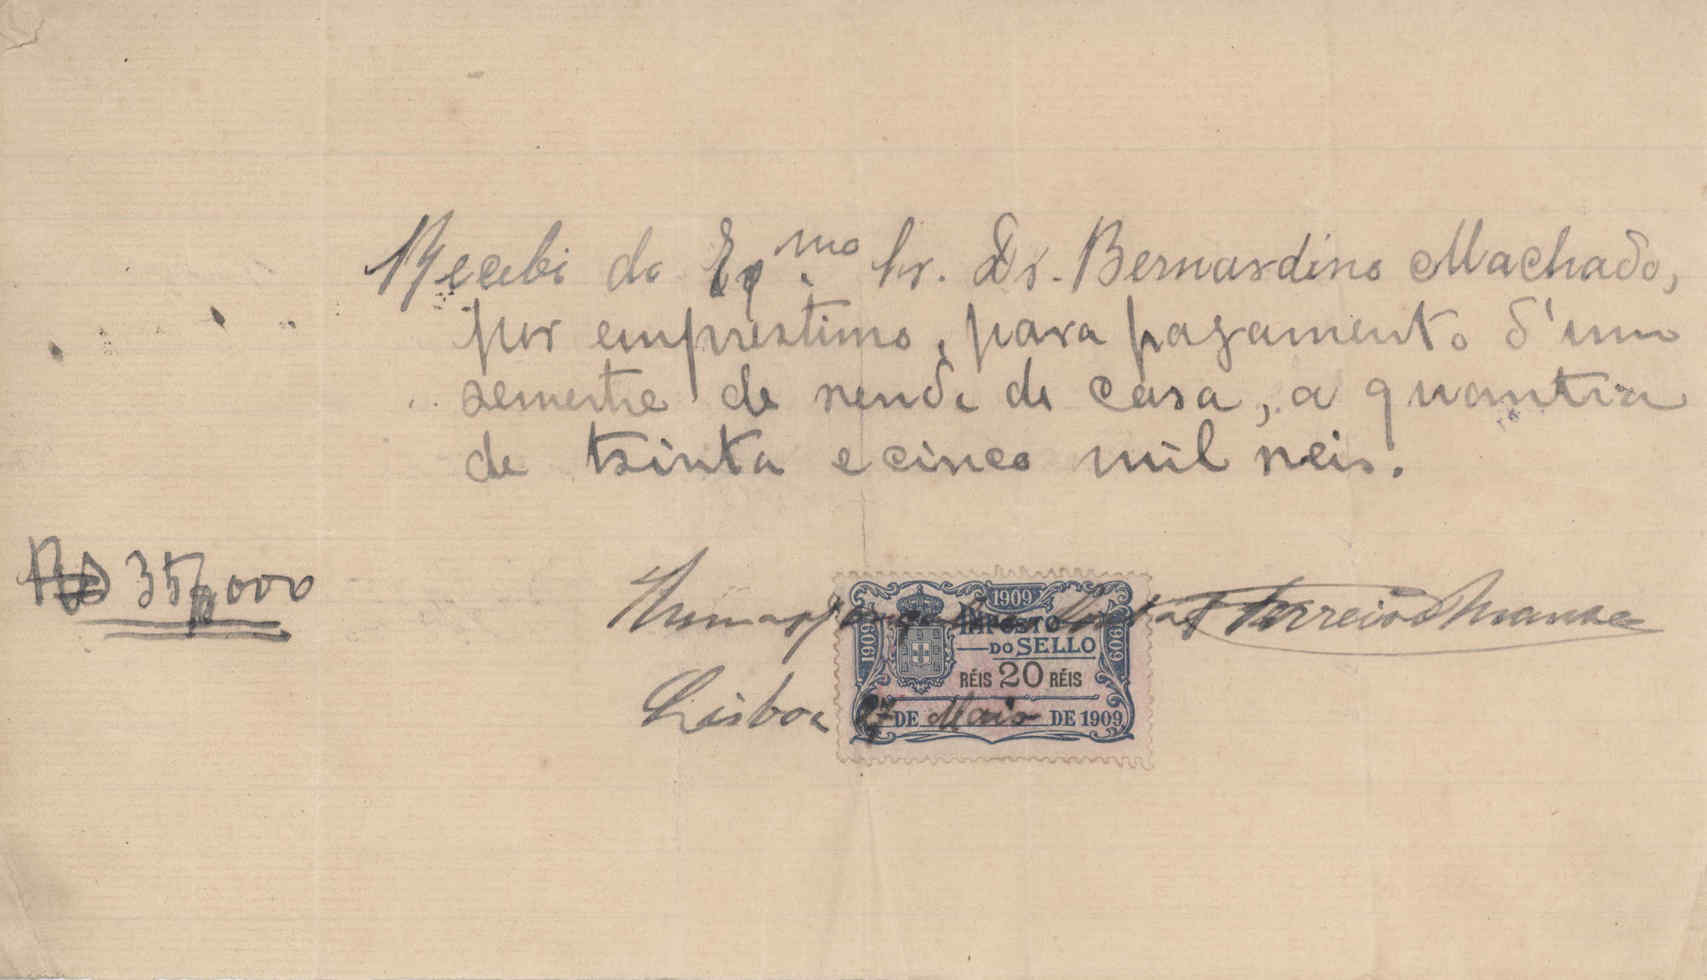 Recebi do Exmo Sr. Dr. Bernardino Machado,
por emprestimo, para pagamento d'um
semestre de renda de casa, a quantia
de trinta e cinco mil reis.
Rs 35$000
1909
IMPOSTO
DO SELLO
1909
1909
RÉIS 20 RÉIS
Lisboa 27 DE Maio DE 1909